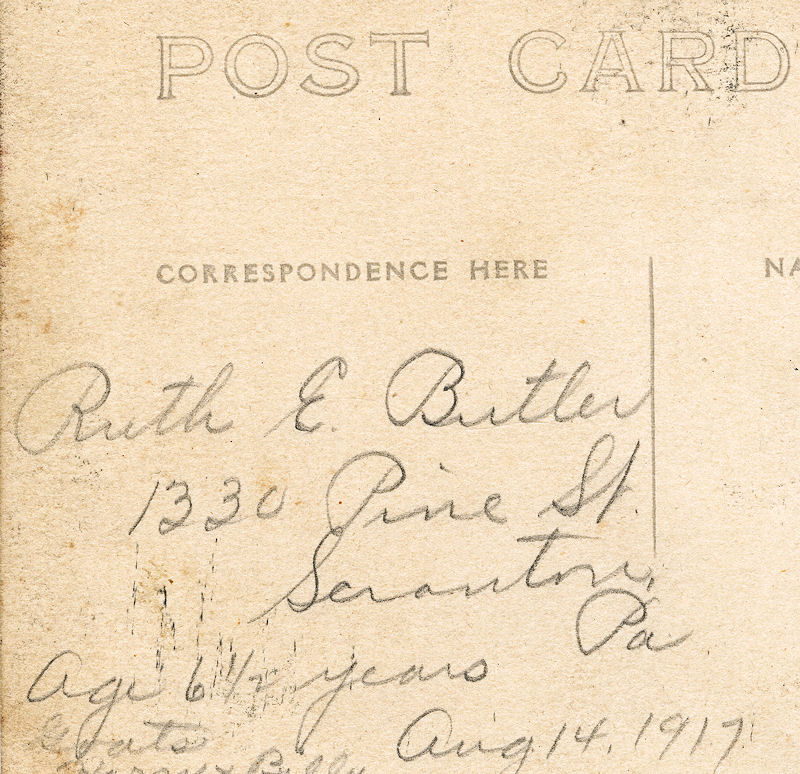 POST CARD
CORRESPONDENCE HERE
Ruth E. Butler
1330 Pine St.
Scranton,
Pa
Age 6 1/2 years
Goats Aug 14, 1917
Billy